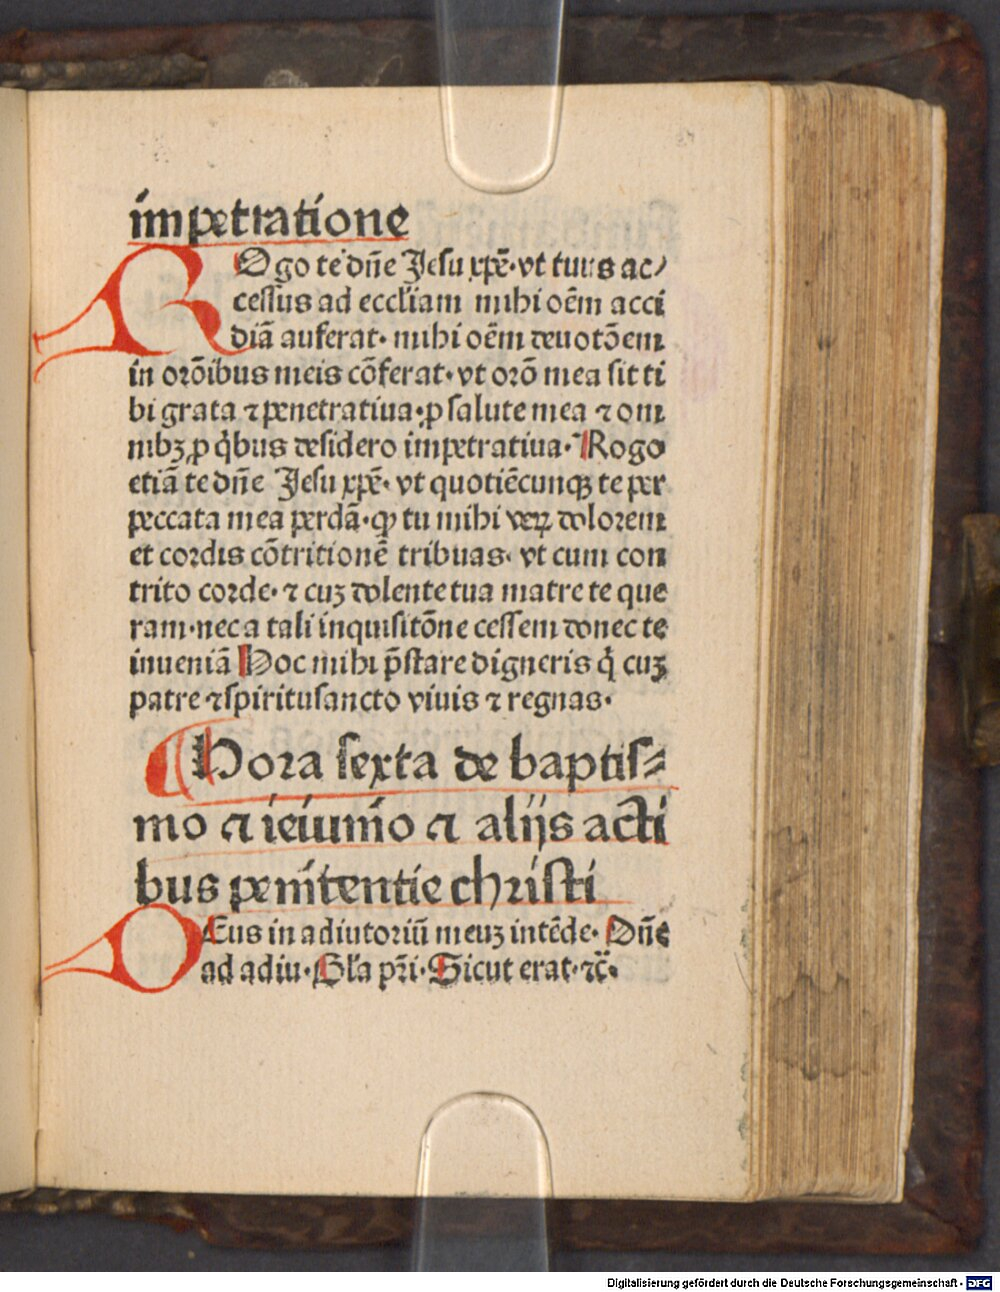 impetratione
ROgo te dn̄e Jesu xp̄e· vt tuus ac⸗
cessus ad eccl'iam mihi oēm acci
diā auferat· mihi oēm deuotōem
in orōibus meis cōferat· vt orō mea sit ti
bi grata ⁊ penetratiua· ꝓ salute mea ⁊ om
nibꝫ ꝓ qͥbus desidero impetratiua· Rogo
etiā te dn̄e Jesu xp̄e· vt quotiēcunqꝫ te per
peccata mea perdā· ꝙ tu mihi veꝝ dolorem
et cordis cōtritionē tribuas· vt cum con
trito corde· ⁊ cuꝫ dolente tua matre te que
ram· nec a tali inquisitōne cessem donec te
inueniā Hoc mihi p̄stare digneris qͥ cuꝫ
patre ⁊ spiritusancto viuis ⁊ regnas·
¶ Hora sexta de baptis⸗
mo ⁊ ieiunīo ⁊ alijs acti
bus penītentie christi
DEus in adiutoriū meuꝫ intēde· Dn̄e
ad adiu· Gl'a pr̄i· Sicut erat· ⁊c̄·
Digitalisierung gefördert durch die Deutsche Forschungsgemeinschaft - DFG